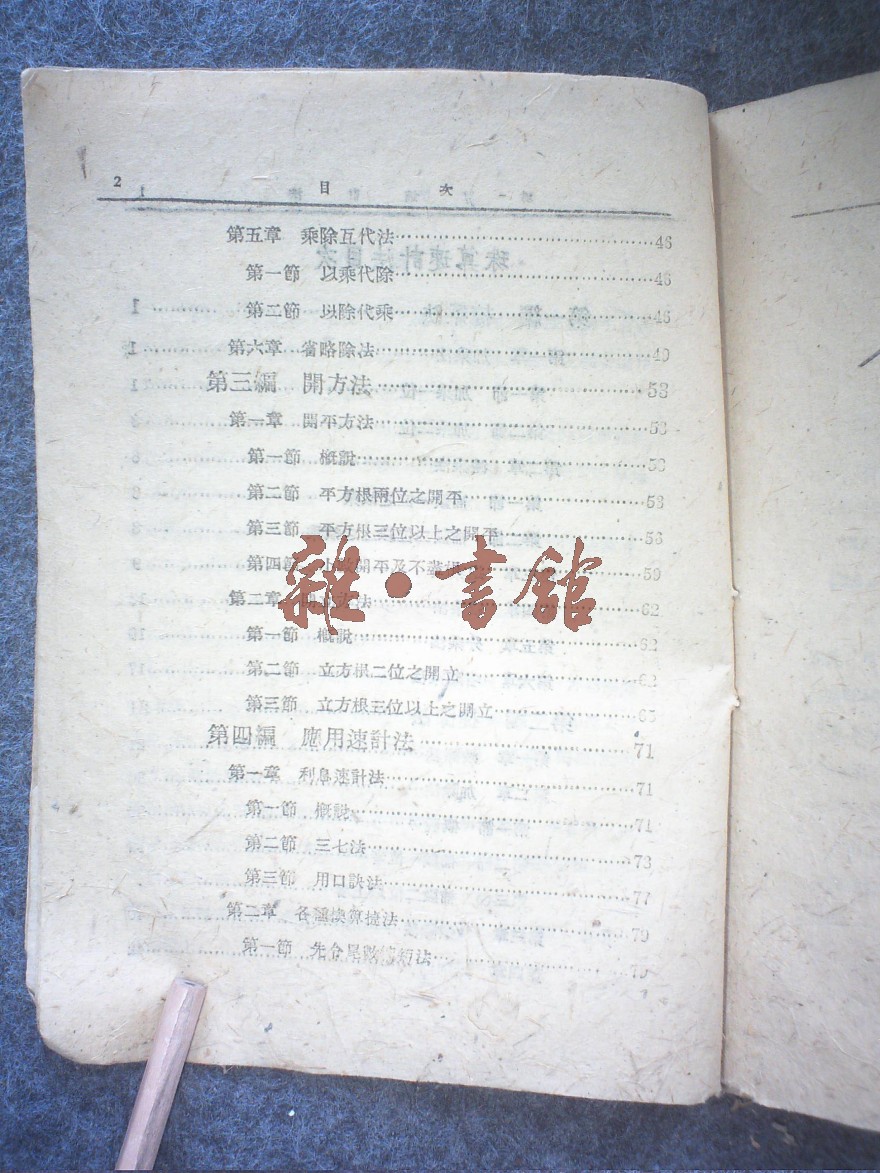 2 目 次
第五章 乘除互代法……46
第一節 以乘代除……46
第二節 以除代乘……46
第六章 省略除法……49
第三編 開方法……53
第一章 開平方法……53
第一節 概說……53
第二節 平方根兩位之開平……53
第三節 平方根三位以上之開平……56
第四節 開平及不盡……59
第二章 開立方法……62
第一節 概說……62
第二節 立方根二位之開立……62
第三節 立方根三位以上之開立……65
第四編 應用速計法……71
第一章 利息速計法……71
第一節 概說……71
第二節 三七法……73
第三節 用口訣法……77
第二章 各種換算捷法……79
第一節 先令尾數法……79
雜·書館